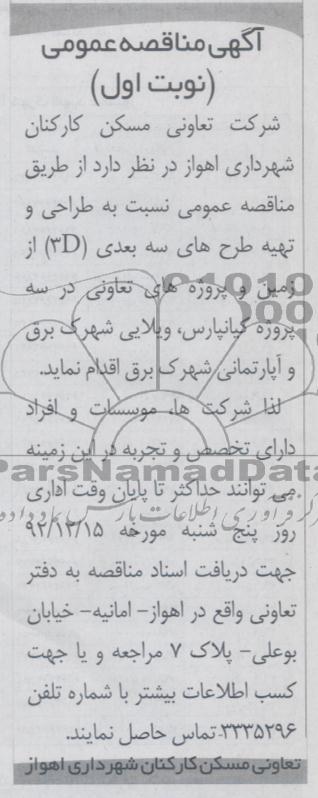 آگهی مناقصه عمومی
(نوبت اول)
شرکت تعاونی مسکن کارکنان
شهرداری اهواز در نظر دارد از طریق
مناقصه عمومی نسبت به طراحی و
تهیه طرح های سه بعدی (۳D) از
زمین و پروژه های تعاونی در سه
پروژه کیانپارس، ویلایی شهرک برق
و آپارتمانی شهرک برق اقدام نماید.
لذا شرکت ها، موسسات و افراد
دارای تخصص و تجربه در این زمینه
ParsNamadData
می توانند حداکثر تا پایان وقت اداری
روز پنج شنبه مورخه ۹۲/۱۲/۱۵
جهت دریافت اسناد مناقصه به دفتر
تعاونی واقع در اهواز- امانیه- خیابان
بوعلی- پلاک ۷ مراجعه و یا جهت
کسب اطلاعات بیشتر با شماره تلفن
۳۳۳۵۲۹۶ تماس حاصل نمایند.
تعاونی مسکن کارکنان شهرداری اهواز